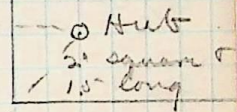 Hub
2" square
15" long